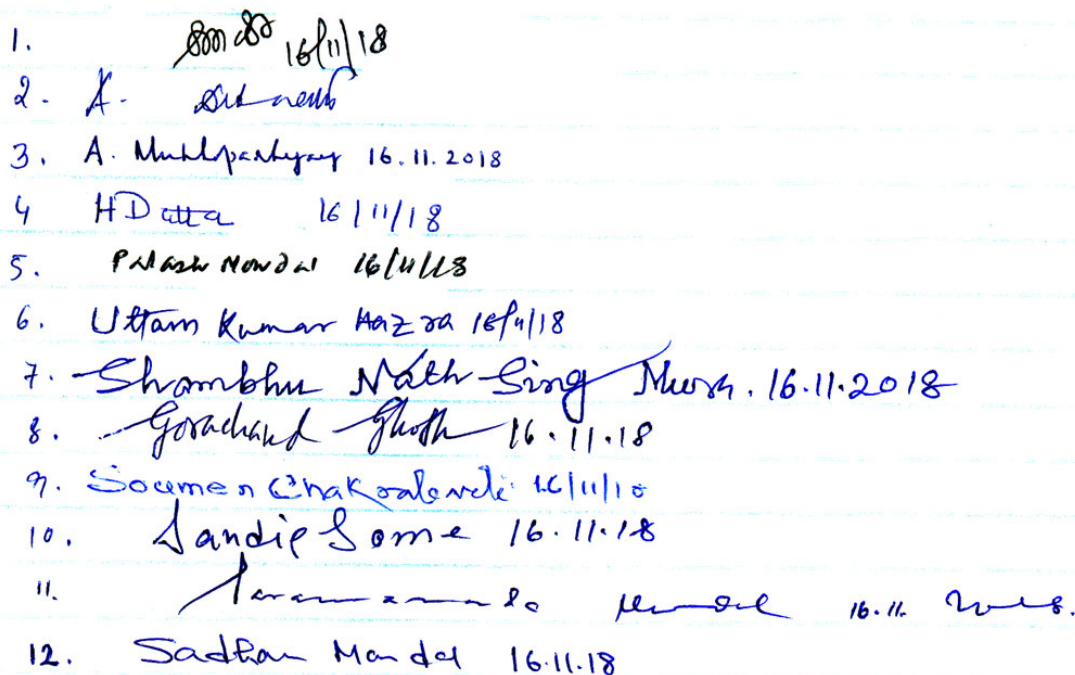 1. 16/11/18
2. A.
3. A. Mukhopadhyay 16.11.2018
4 HDatta 16/11/18
5. Palash Mondal 16/11/18
6. Uttam Kumar Hazra 16/11/18
7. Shambhu Nath Sing Mura. 16.11.2018
8. Gorachand Ghosh 16.11.18
9. Soumen Chakraborti 16/11/18
10. Sandip Some 16.11.18
11. 16.11.
12. Sadhan Mandal 16.11.18